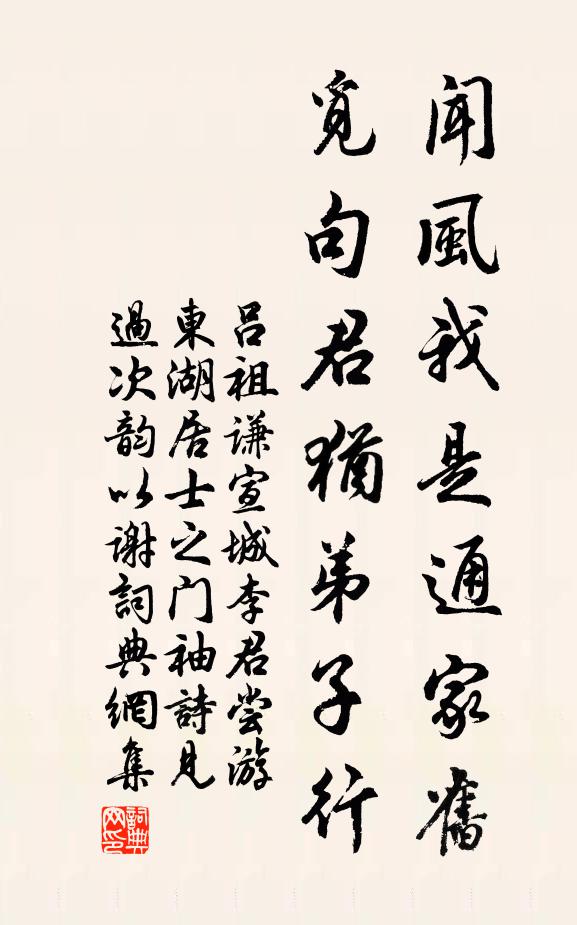 聞風我是通家舊
覓句君猶弟子行
呂祖謙宣城李君嘗游
東湖居士之门袖詩見
過次韵以谢詞典網集
詞典
网印